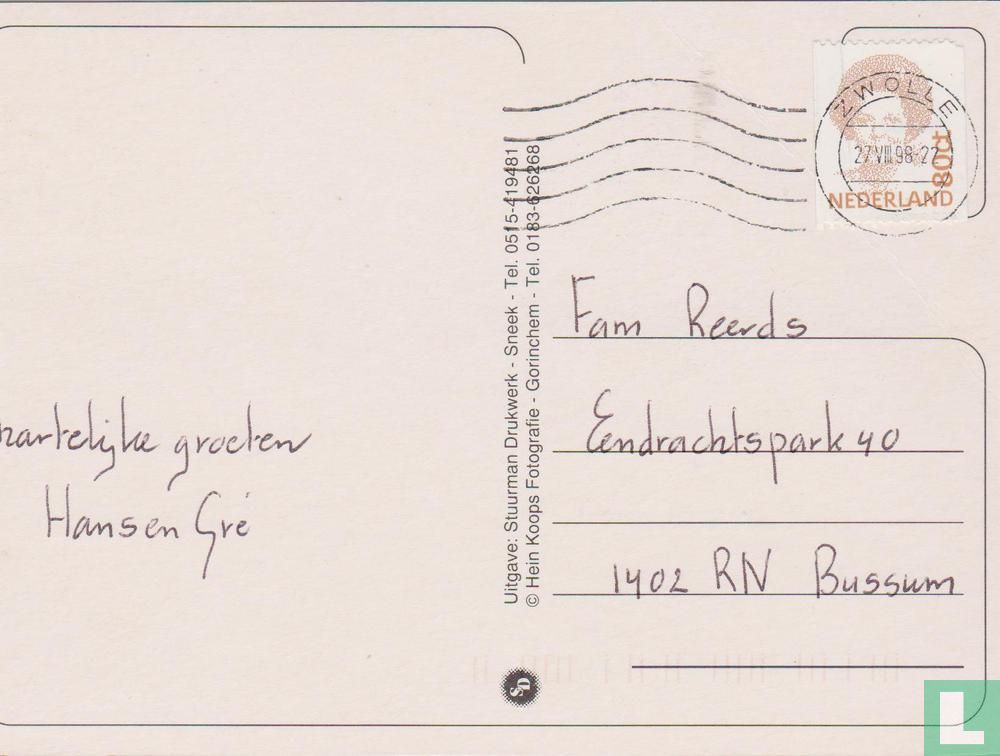 hartelijke groeten
Hans en Gré
Uitgave: Stuurman Drukwerk - Sneek - Tel. 0515-419481
© Hein Koops Fotografie - Gorinchem - Tel. 0183-626268
SD
ZWOLLE
27.VIII.98-22
80ct
NEDERLAND
Fam Reerds
Eendrachtspark 40
1402 RN Bussum
L